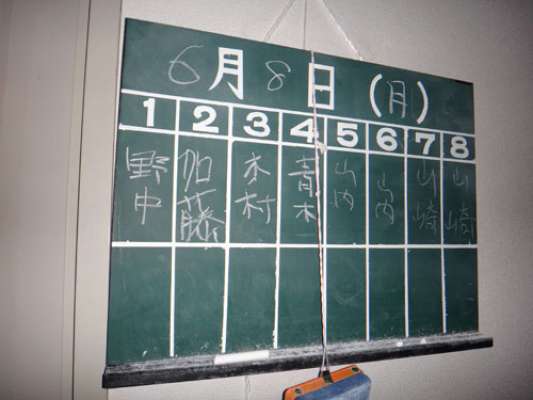 6月8日(月)
1 2 3 4 5 6 7 8
野中 加藤 木村 青木 山内 山内 山崎 山崎